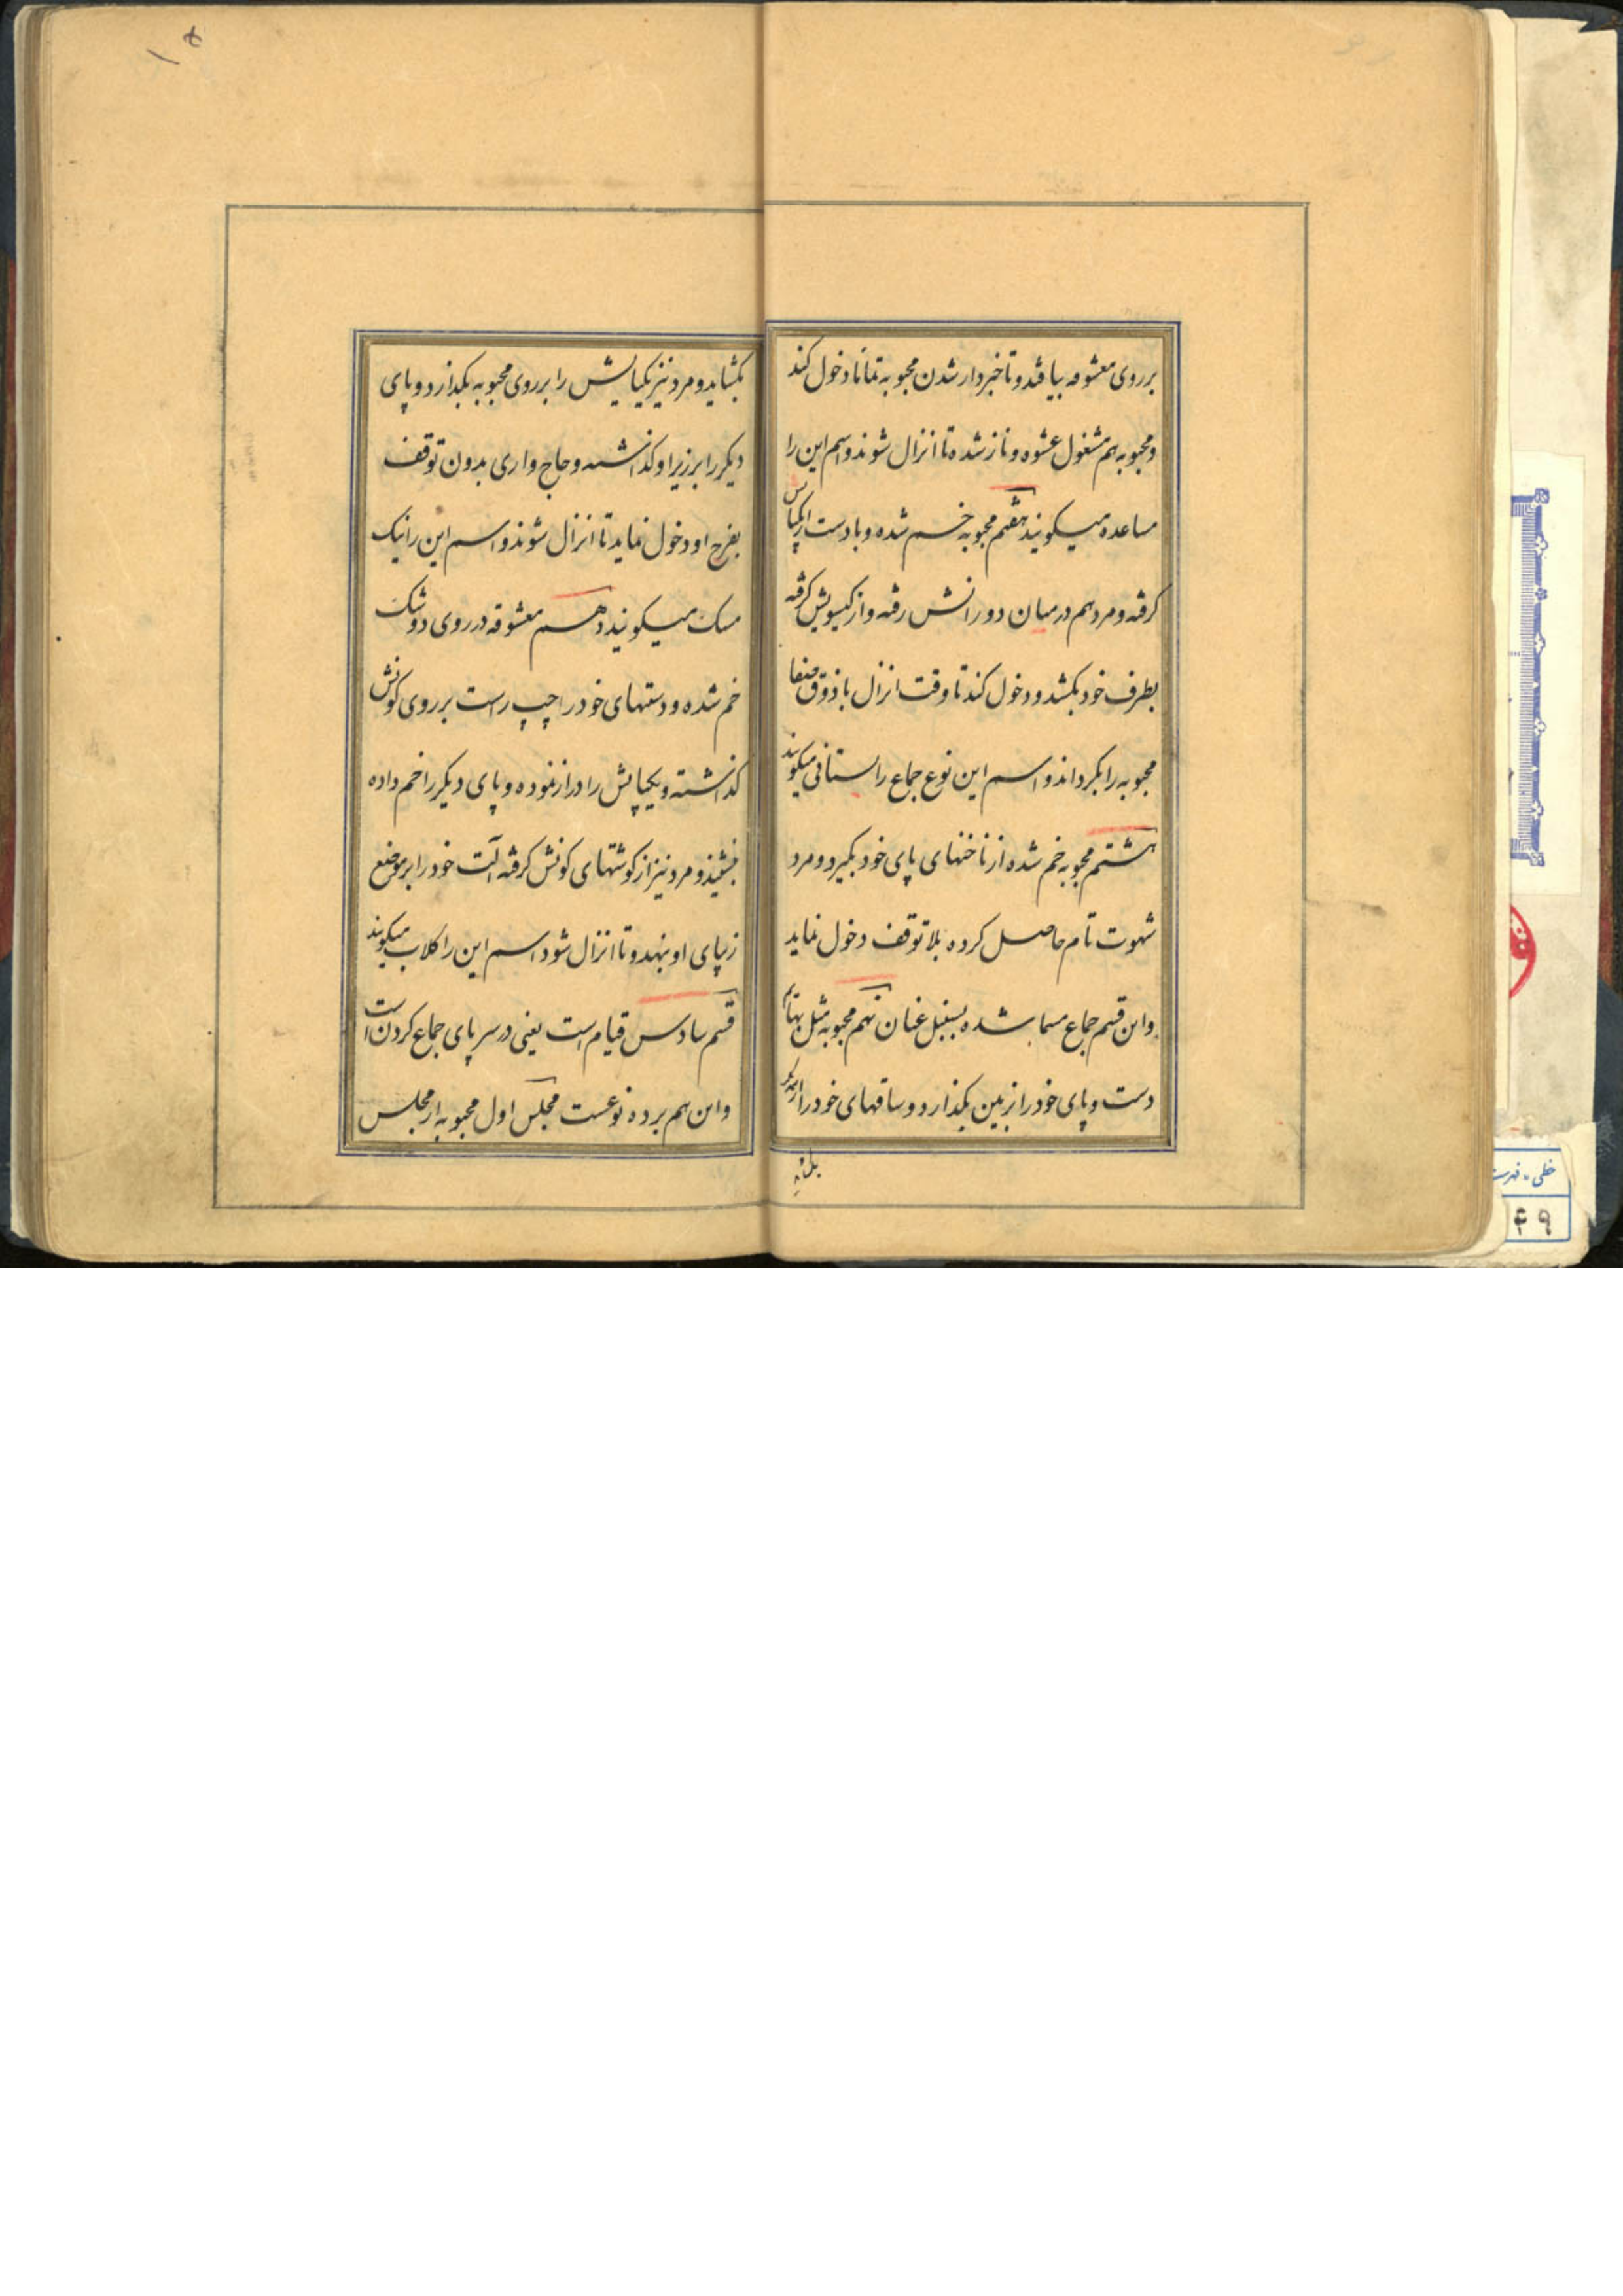 بر روی معشوقه بیافتد و تا خبردار شدن محبوبه تماما دخول کند
و محبوبه هم مشغول عشوه و ناز شده تا انزال شوند و اسم این را
مساعده میکویند هفتم محبوبه خم شده و با دست از یکپایش
کرفته و مرد هم در میان دو رانش رفته و از کیسویش کرفته
بطرف خود بکشد و دخول کند تا وقت انزال با ذوق و صفا
محبوبه را بکرداند و اسم این نوع جماع راستانی میکویند
هشتم محبوبه خم شده از ناخنهای پای خود بکیرد و مرد
شهوت تام حاصل کرده بلا توقف دخول نماید
و این قسم جماع مسما شده بسنبل غنان نهم محبوبه مثل بهائم
دست و پای خود را بزمین بکذارد و ساقهای خود را از یکدیکر
بکشاید و مرد نیز یکپایش را بر روی محبوبه بکذارد و پای
دیکر را بر زیر او کذاشته و حاج واری بدون توقف
بفرج او دخول نماید تا انزال شوند و اسم این را نیک
مسک میکویند دهم معشوقه در روی دوشک
خم شده و دستهای خود را چپ راست بر روی کونش
کذاشته و یکپایش را دراز نموده و پای دیکر را خم داده
بنشیند و مرد نیز از کوشتهای کونش کرفته آلت خود را بر موضع
زیپای او بنهد و تا انزال شود اسم این را کلاب میکویند
قسم سادس قیام است یعنی در سر پای جماع کردن است
و این هم بر ده نوعست مجلس اول محبوبه از مجلس
خطی - فهرست